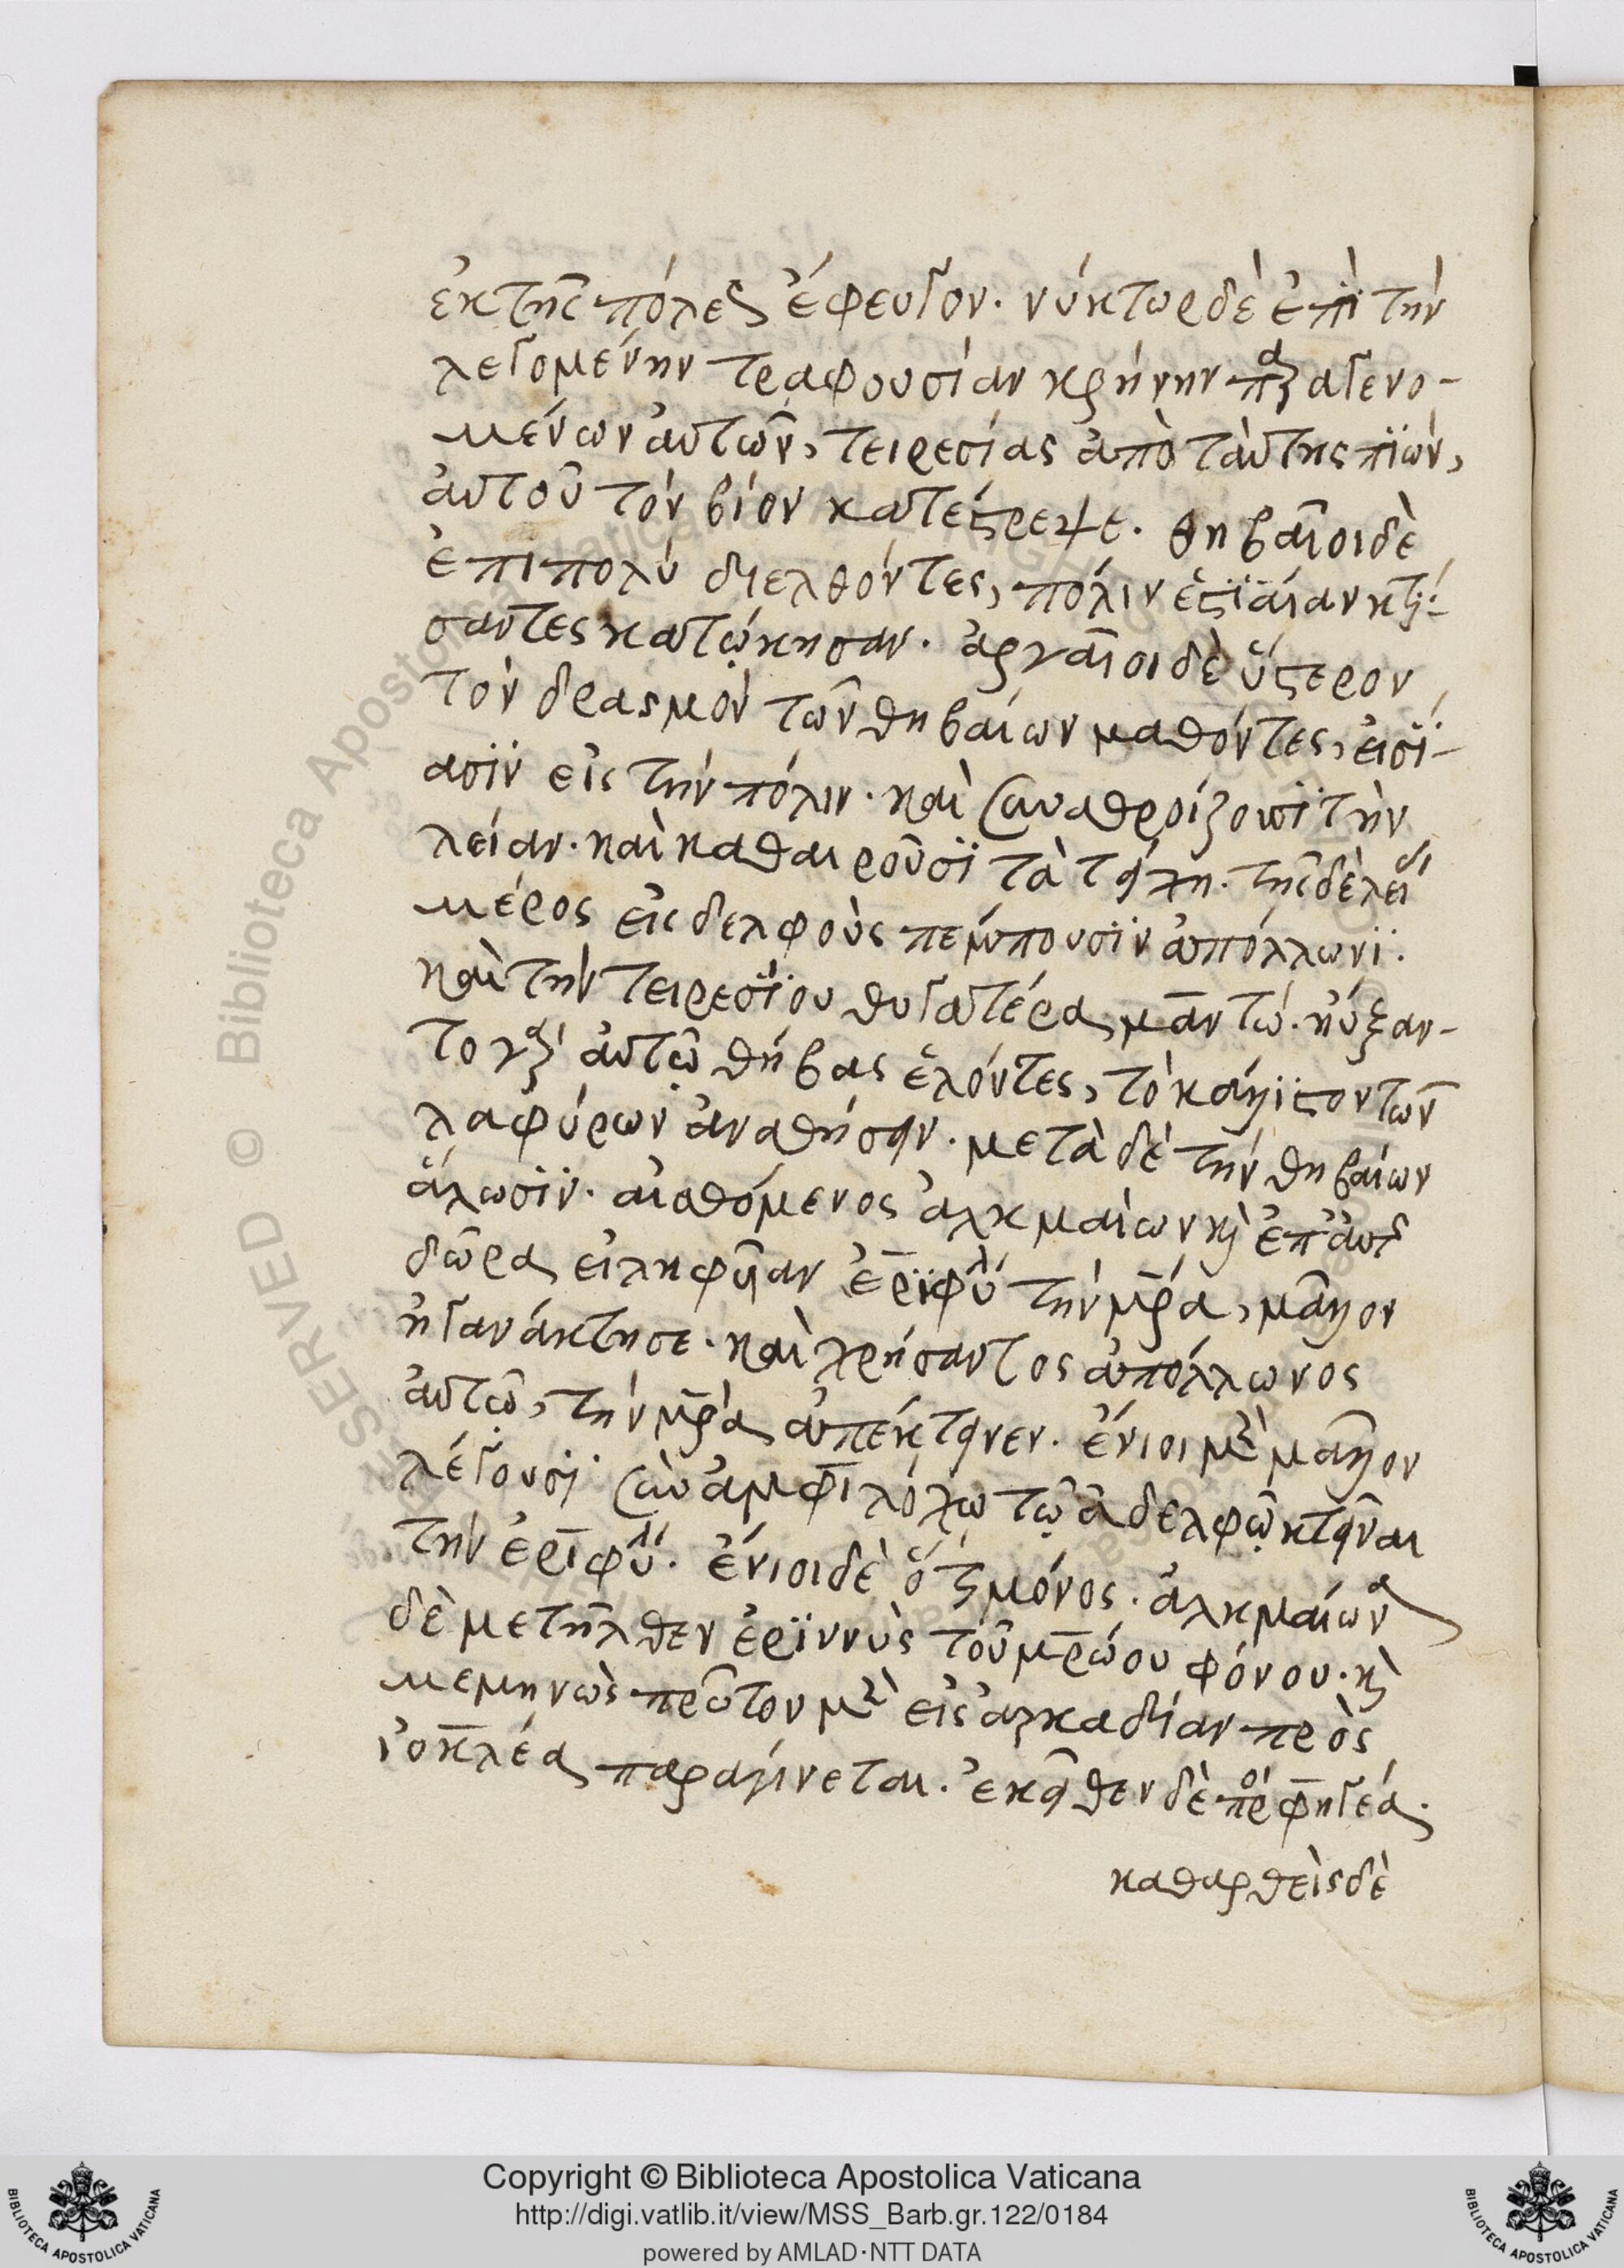 ἐκ τῆς πόλεως ἔφευγον· νύκτωρ δὲ ἐπὶ τὴν
λεγομένην τραφουσίαν κρήνην παραγενο-
μένων αὐτῶν, τειρεσίας ἀπὸ ταύτης πϊὼν,
αὐτοῦ τὸν βίον κατέστρεψε. θηβαῖοι δὲ
ἐπιπολὺ διελθόντες, πόλιν ἑστϊαίαν κτί-
σαντες κατῴκησαν. ἀργαῖοι δὲ ὕστερον
τὸν δρασμὸν τῶν θηβαίων μαθόντες, εἰσΐ-
ασϊν εἰς τὴν πόλιν· καὶ συναθροίζουσϊ τὴν
λείαν· καὶ καθαιροῦσϊ τὰ τείχη. τῆς δὲ λείας
μέρος εἰς δελφοὺς πέμπουσϊν ἀπόλλωνϊ.
καὶ τὴν τειρεσΐου θυγατέρα μαντώ. ηὔξαν-
το γὰρ αὐτῷ θήβας ἑλόντες, τὸ κάλλιστον τῶν
λαφύρων ἀναθήσειν. μετὰ δὲ τὴν θηβαίων
ἅλωσϊν· αἰσθόμενος ἀλκμαίων καὶ ἐπ' αὐτῷ
δῶρα εἰληφυῖαν ἐρϊφύλην τὴν μητέρα, μᾶλλον
ἠγανάκτησε. καὶ χρήσαντος ἀπόλλωνος
αὐτῷ, τὴν μητέρα ἀπέκτεινεν. ἔνιοι μὲν μᾶλλον
λέγουσϊ σὺν ἀμφιλόχῳ τῷ ἀδελφῷ κτεῖναι
τὴν ἐριφύλην. ἔνιοι δὲ ὅτι μόνος. ἀλκμαίωνα
δὲ μετῆλθεν ἐρϊννὺς τοῦ μητρῴου φόνου. καὶ
μεμηνὼς πρῶτον μὲν εἰς ἀρκαδίαν πρὸς
ἰοκλέα παραγίνεται. ἐκεῖθεν δὲ πρὸς φηγέα.
καθαρθεὶς δὲ
Copyright © Biblioteca Apostolica Vaticana
http://digi.vatlib.it/view/MSS_Barb.gr.122/0184
powered by AMLAD·NTT DATA